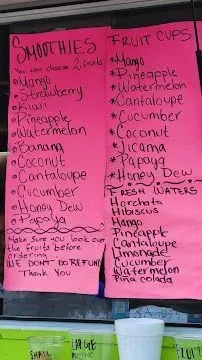 SMOOTHIES
You can choose 2 fruits
•Mango
•Strawberry
•Kiwi
•Pineapple
•Watermelon
•Banana
•Coconut
•Cantaloupe
•Cucumber
•Honey Dew
•Papaya
Make sure you look over
the fruits before
ordering
WE DON'T DO REFUND
Thank You
FRUIT CUPS
*Mango
*Pineapple
*Watermelon
*Cantaloupe
*Cucumber
*Coconut
*Jicama
*Papaya
*Honey Dew
FRESH WATERS
Horchata
Hibiscus
Mango
Pineapple
Cantaloupe
Limonade
Cucumber
Watermelon
Piña colada
SMALL
LARGE